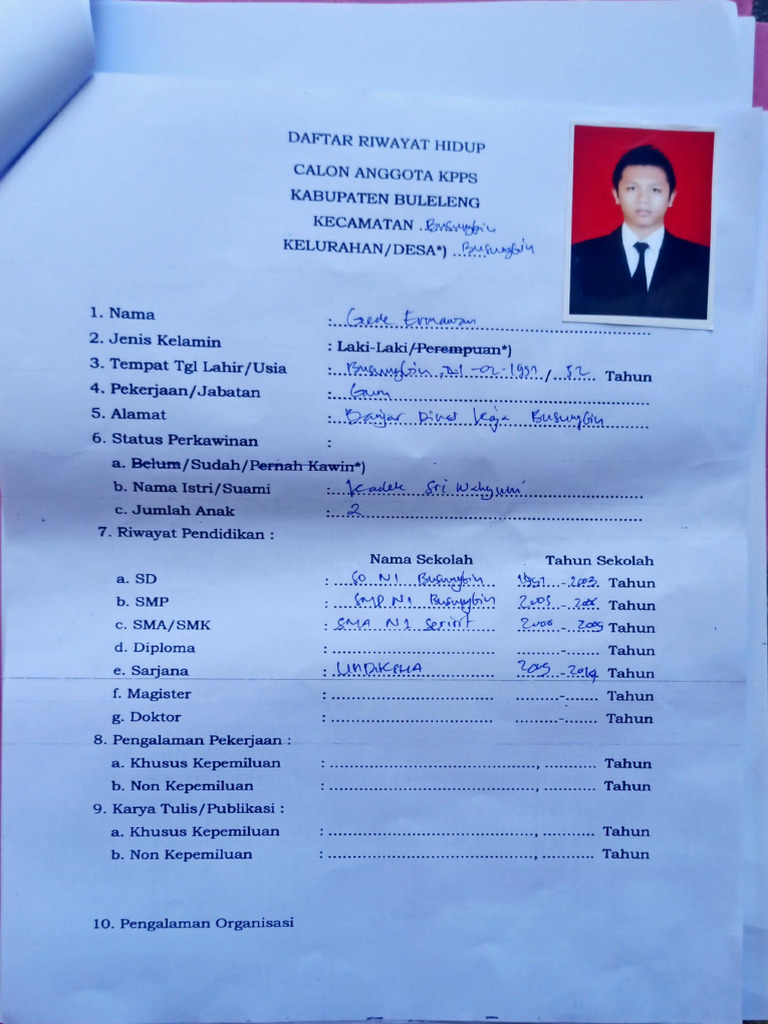 DAFTAR RIWAYAT HIDUP
CALON ANGGOTA KPPS
KABUPATEN BULELENG
KECAMATAN Busungbiu
KELURAHAN/DESA*) Busungbiu
1. Nama : Gede Ermawan
2. Jenis Kelamin : Laki-Laki/Perempuan*)
3. Tempat Tgl Lahir/Usia : Busungbiu, -02-1991 / 32 Tahun
4. Pekerjaan/Jabatan : Guru
5. Alamat : Banjar Dinas Kaja Busungbiu
6. Status Perkawinan :
a. Belum/Sudah/Pernah Kawin*)
b. Nama Istri/Suami : Kadek Sri Wahyuni
c. Jumlah Anak : 2
7. Riwayat Pendidikan :
Nama Sekolah Tahun Sekolah
a. SD : SD N 1 Busungbiu 1997 - 2003 Tahun
b. SMP : SMP N 1 Busungbiu 2003 - 2006 Tahun
c. SMA/SMK : SMA N 1 Seririt 2006 - 2009 Tahun
d. Diploma : - Tahun
e. Sarjana : UNDIKSHA 2009 - 2014 Tahun
f. Magister : - Tahun
g. Doktor : - Tahun
8. Pengalaman Pekerjaan :
a. Khusus Kepemiluan : , Tahun
b. Non Kepemiluan : , Tahun
9. Karya Tulis/Publikasi :
a. Khusus Kepemiluan : , Tahun
b. Non Kepemiluan : , Tahun
10. Pengalaman Organisasi